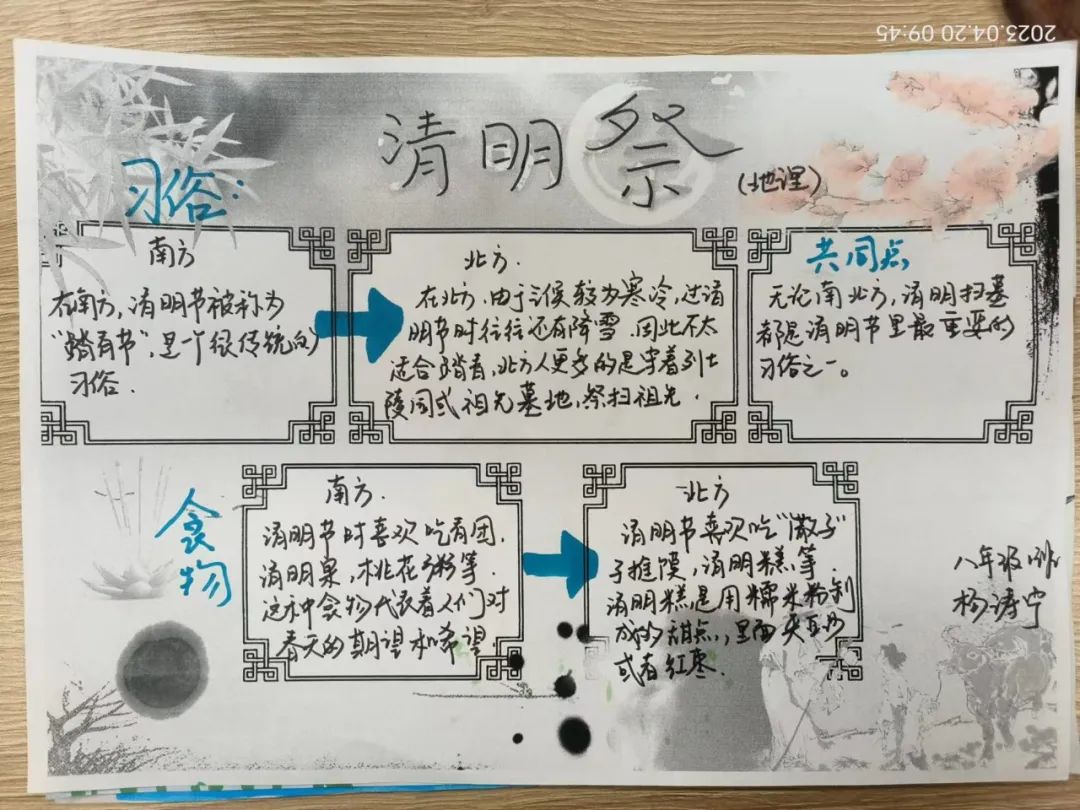 2023.04.20 09:45
清明祭
(地理)
习俗:
南方
在南方,清明节被称为
"踏青节",是一个很传统的
习俗.
北方.
在北方,由于气候较为寒冷,过清
明节时往往还有降雪.因此不太
适合踏青,北方人更多的是守着烈士
陵园或祖先墓地,祭扫祖先.
共同点
无论南北方,清明扫墓
都是清明节里最重要的
习俗之一。
食物
南方.
清明节时喜欢吃青团,
清明粿,桃花粥等.
这种食物代表着人们对
春天的期望和希望
北方
清明节喜欢吃"馓子"
子推馍,清明糕等.
清明糕是用糯米粉制
成的甜点,里面夹豆沙
或者红枣.
八年级
杨涛宁